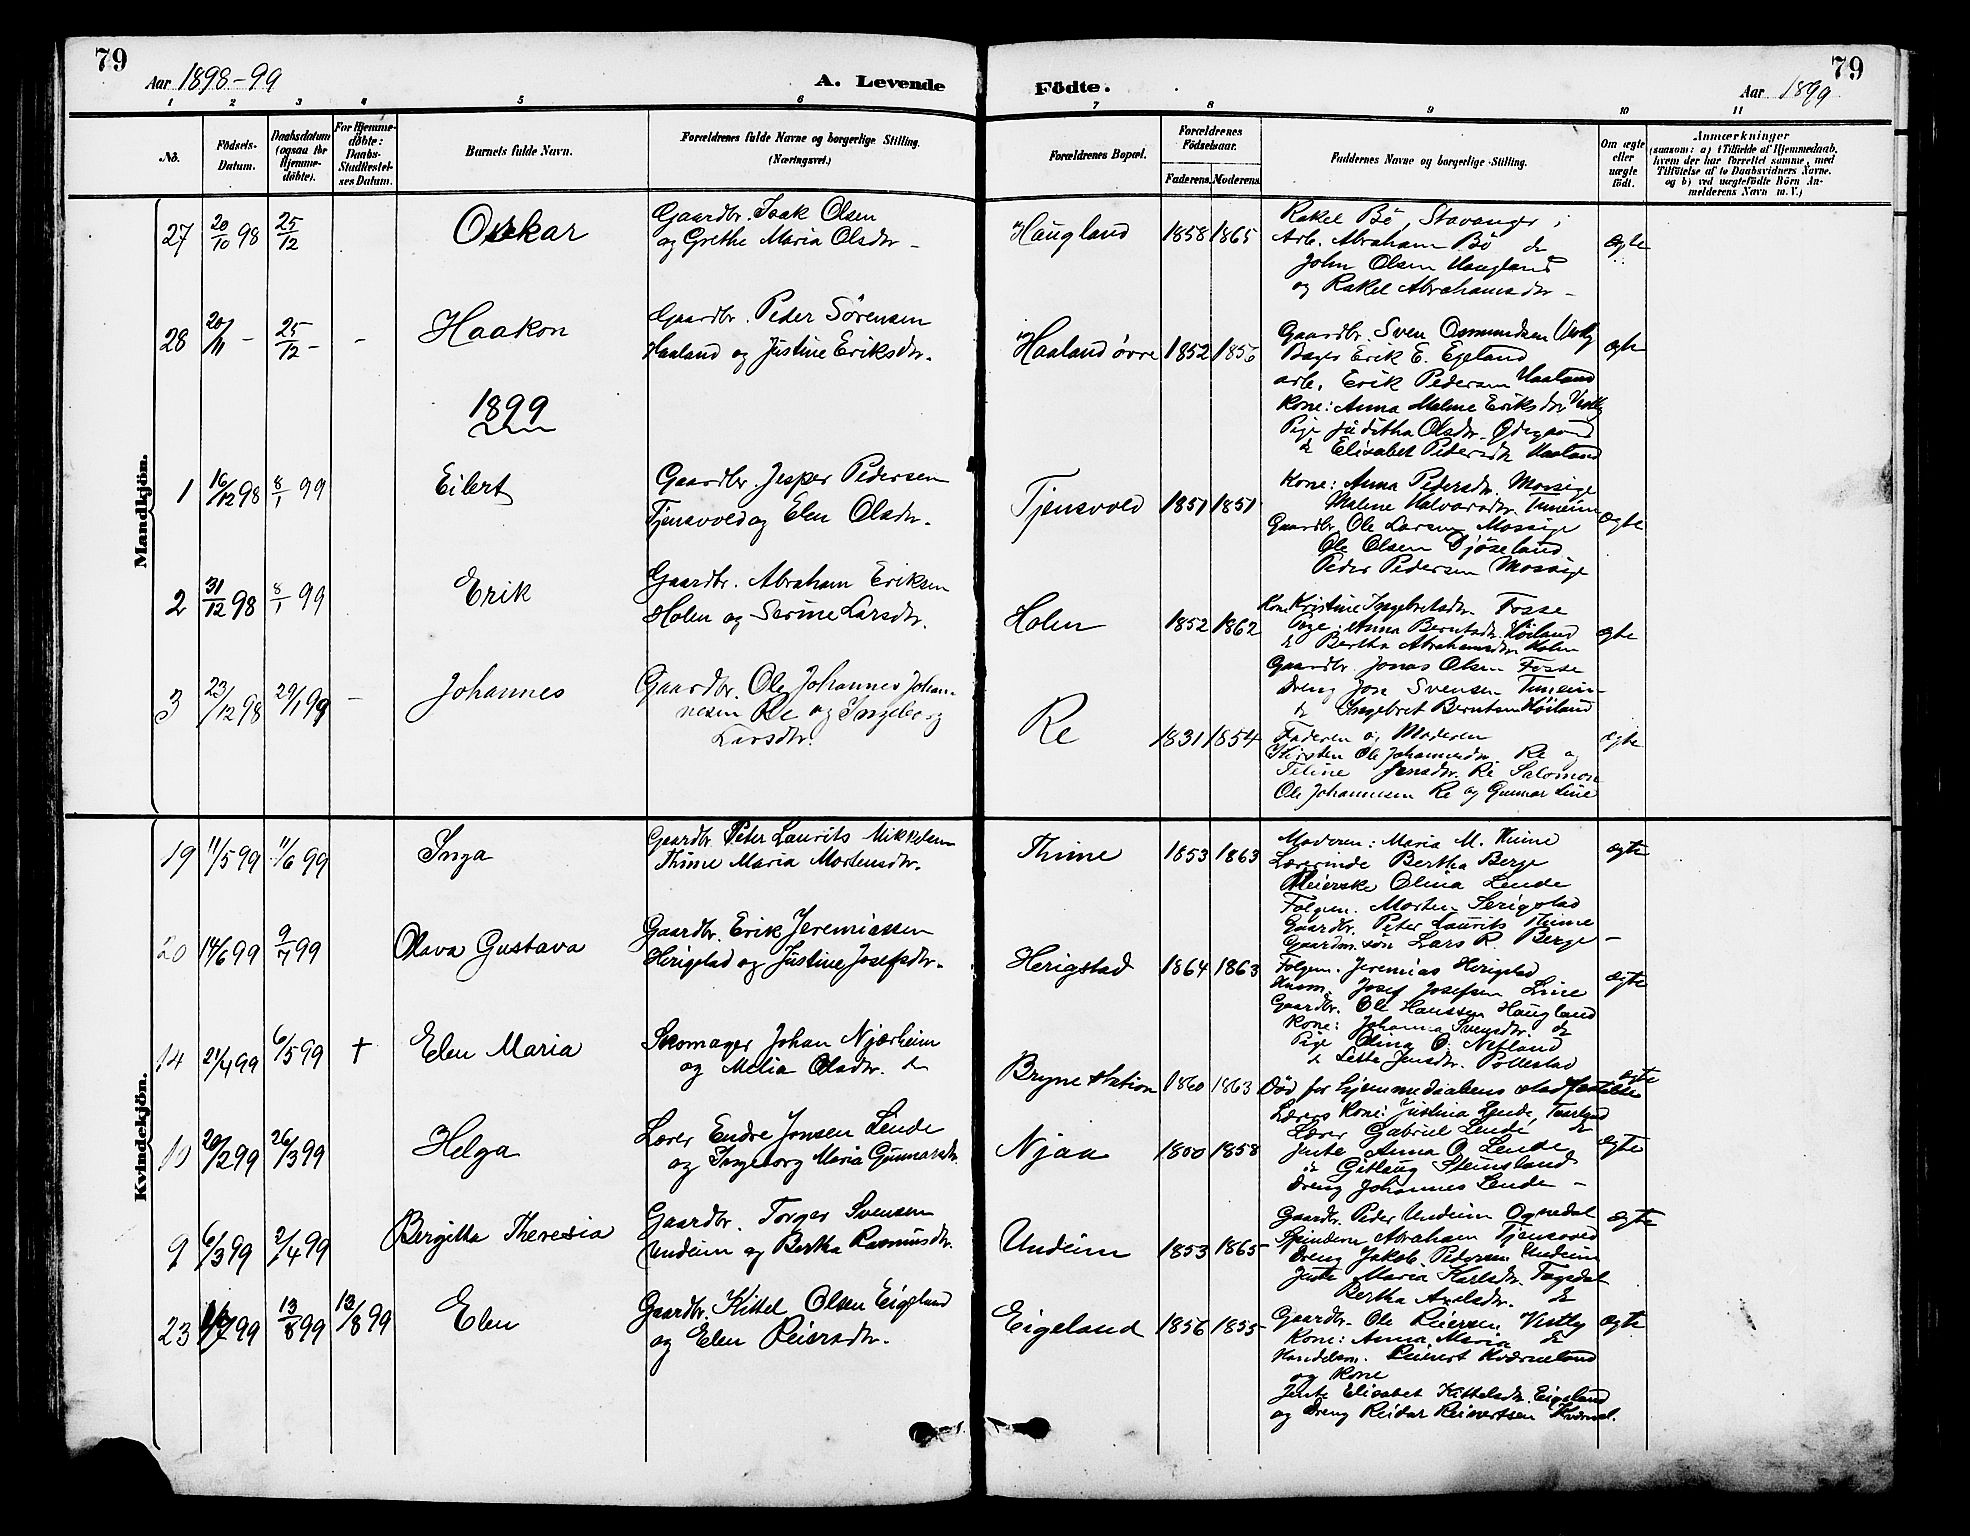 79
Aar 1898-99
A. Levende
Födte.
Aar 1899
79
1 2 3 4 5 6 7 8 9 10 11
No.
Födsels-Datum.
Daabsdatum (ogsaa for Hjemme-döbte).
For Hjemme-döbte: Daabs-Stadfæstel-ses Datum.
Barnets fulde Navn.
Forældrenes fulde Navne og borgerlige Stilling. (Næringsvei.)
Forældrenes Bopæl.
Forældrenes Födselsaar.
Faderens. Moderens.
Faddernes Navne og borgerlige Stilling.
Om ægte eller uægte födt.
Anmærkninger
(saasom: a) i Tilfælde af Hjemmedaab, hvem der har forrettet samme, med Tilföielse af to Daabsvidners Navne. og b) ved uægtefödte Börn An-melderens Navn m. V.)
Mandkjön.
27 20/10 98 25/12 Oskar
Gaardbr. Isak Olsen
og Grethe Maria Olsdtr -
Haugland 1858 1865
Rakel Bö, Stavanger;
Arb. Abraham Bö do
John Olsen Haugland
og Rakel Abrahamsdtr -
ægte
28 20/11 - 25/12 - - Haakon
Gaardbr. Peder Sörensen
Haaland og Justine Eriksdtr.
Haaland övre 1852 1856
Gaardbr. Sven Osmundsen Vestly
Bager Erik E. Egeland
arb. Erik Pedersen Haaland
Kone: Anna Malene Eriksdtr Vestly
Pige Juditha Olsdtr. Ödegaard
do Elisabet Pedersdtr Haaland
ægte
1899
1 16/12 98 8/1 99 Eilert
Gaardbr. Jesper Pedersen
Tjensvold og Elen Olsdtr.
Tjensvold 1851 1851
Kone: Anna Pedersdtr. Mossige
Malene Halvorsdtr. Tunheim
Gaardbr. Ole Larsen Mossige
Ole Olsen Djöseland
Peder Pedersen Mossige
ægte
2 31/12 98 8/1 99 Erik
Gaardbr. Abraham Eriksen
Holen og Serine Larsdtr.
Holen 1852 1862
Kone Kristine Ingebretsdtr. Fosse
Pige: Anna Berntsdtr. Höiland
do Bertha Abrahamsdtr Holen
Gaardbr. Jonas Olsen Fosse
Dreng Jon Svensen Tunein
do Ingebret Berntsen Höiland
ægte
3 23/12 98 29/1 99 - Johannes
Gaardbr. Ole Johannes Johan-
nesen Re og Ingeborg
Larsdtr.
Re 1831 1854
Faderen og Moderen
Kirsten Ole Johannesdtr. Re og
Teline Jensdtr. Re Salomon
Ole Johannesen Re og Gunnar Line
ægte
Kvindekjön.
19 11/5 99 11/6 99 Inga
Gaardbr Peter Laurits Mikkelsen
Thime Maria Mortensdtr.
Thime 1853 1863
Moderen: Maria M. Thime
Lærerinde Bertha Berge
Meierske Olina Lende
Folgem. Morten Serigstad
Gaardbr. Peter Laurits Thime
Gaardm.sön Lars R. Berge -
ægte
20 14/6 99 9/7 99 Olava Gustava
Gaardbr. Erik Jeremiassen
Herigstad og Justine Josefsdtr.
Herigstad 1864 1863
Folgem. Jeremias Herigstad
Husm. Josef Josefsen Line
Gaardbr. Ole Hanssen Haugland
Kone: Johanna Svensdtr. do
Pige Olina O. Nesland
do Jensdtr. Pollestad
ægte
14 21/4 99 6/5 99 † Elen Maria
Skomager Johan Njærheim
og Melia Olsdtr. do
Bryne station 1860 1863
Död før hjemmedaabens stadfæstelse
ægte
10 20/2 99 26/3 99 Helga
Lærer Endre Jonsen Lende
og Ingeborg Maria Gunnarsdtr.
Njaa 1860 1858
Lærers Kone: Justina Lende,
Lærer Gabriel Lende do
Jente Anna O. Lende
do Gitlaug Steinsland
Dreng Johannes Lende -
ægte
9 6/3 99 2/4 99 Bergitha Theresia
Gaardbr. Torger Svensen
Undeim og Bertha Rasmusdtr.
Undeim 1853 1865
Gaardbr. Peder Undeim Ognedal
Abraham Tjensvold
Dreng Jakob Pedersen Undeim
Jente Maria Karlsdtr. Fagsdal
Bertha Axelsdtr. do
ægte
23 /7 99 13/8 99 13/8 99 Elen
Gaardbr. Kittel Olsen Eigeland
og Elen Reiersdtr.
Eigeland 1856 1855
Gaardbr. Ole Reiersen Vestly
Kone: Anna Maria do
Handelsm. Reinert Kværneland
og Kone
Jente Elisabet Kittelsdtr. Eigeland
og Dreng Reidar Reinertsen Kværnel.
ægte